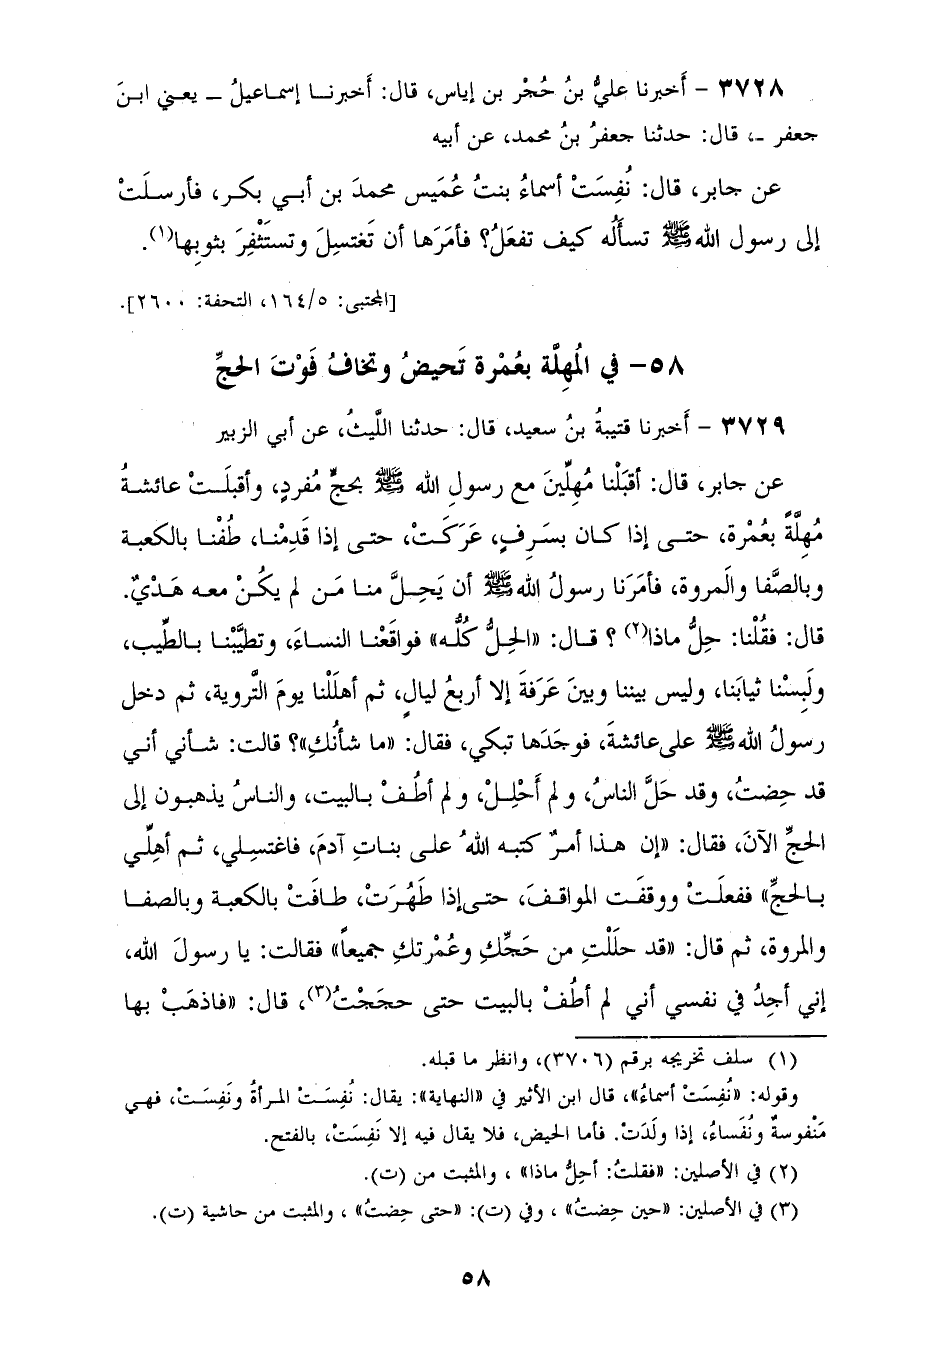 ٣٧٢٨ - أَخبرنا عليُّ بنُ حُجْر بن إياس، قال: أَخبرنـا إسمـاعيلُ ــ يعـني ابـنَ
جعفر ــ، قال: حدثنا جعفرُ بنُ محمد، عن أبيه
عن جابر، قال: نُفِسَتْ أسماءُ بنتُ عُمَيس محمدَ بن أبي بكر، فأرسلَتْ
إلى رسول الله ﷺ تسأَلُه كيف تفعَلُ؟ فأمَرَها أن تَغتسِلَ وتستَثْفِرَ بثوبِها(١).
[المجتبى: ١٦٤/٥، التحفة: ٢٦٠٠].
٥٨- في المُهِلَّة بعُمْرة تَحيضُ وتخافُ فَوْتَ الحجِّ
٣٧٢٩ - أَخبرنا قتيبةُ بنُ سعيد، قال: حدثنا اللَّيثُ، عن أبي الزبير
عن جابر، قال: أقبَلْنا مُهِلِّينَ مع رسولِ الله ﷺ بحجٍّ مُفردٍ، وأقبلَـتْ عائشةُ
مُهِلَّةً بعُمْرة، حتـى إذا كـان بسَـرِفٍ، عَرَكَتْ، حتـى إذا قَدِمْنـا، طُفْنـا بالكعبة
وبالصَّفا والمَروة، فأمَرَنا رسولُ الله ﷺ أن يَحِـلَّ منـا مَـن لم يكُـنْ معـه هَـدْيٌ.
قال: فقُلْنا: حِلُّ ماذا(٢) ؟ قـال: «الحِلُّ كُلُّه» فواقَعْنا النسـاءَ، وتطيَّبْنـا بـالطِّيب،
ولَبِسْنا ثيابَنا، وليس بيننا وبينَ عَرَفةَ إلا أربعُ ليالٍ، ثم أهلَلْنا يومَ التَّروية، ثم دخل
رسولُ الله ﷺ على عائشةَ، فوجَدَها تبكي، فقال: «ما شأنُكِ»؟ قالت: شـأني أنـي
قد حِضتُ، وقد حَلَّ الناسُ، و لم أَحْلِلْ، و لم أطُفْ بـالبيت، والنـاسُ يذهبـون إلى
الحجِّ الآنَ، فقال: «إن هـذا أمرٌ كتبه اللهُ علـى بنـاتِ آدمَ، فاغتسِـلي، ثـم أهِلِّي
بـالحجِّ» ففعلَـتْ ووقفَـت المواقـفَ، حتـى إذا طَهُـرَتْ، طـافَتْ بالكعبـة وبالصفـا
والمروة، ثم قال: «قد حلَلْتِ من حَجِّكِ وعُمْرتكِ جميعاً» فقالت: يا رسولَ الله،
إني أجِدُ في نفسي أني لم أطُفْ بالبيت حتى حجَجْتُ(٣)، قال: «فاذهَبْ بها
(١) سلف تخريجه برقم (٣٧٠٦)، وانظر ما قبله.
وقوله: «نُفِسَت أسماءُ»، قال ابن الأثير في «النهاية»: يقال: نُفِسَتْ المرأةُ ونَفِسَتْ، فهي
مَنْفوسةٌ ونُفَساءُ، إذا ولَدَتْ. فأما الحيض، فلا يقال فيه إلا نَفِسَتْ، بالفتح.
(٢) في الأصلين: «فقلتُ: أحِلُّ ماذا» ، والمثبت من (ت).
(٣) في الأصلين: «حين حِضتُ» ، وفي (ت): «حتى حِضتُ» ، والمثبت من حاشية (ت).
٥٨